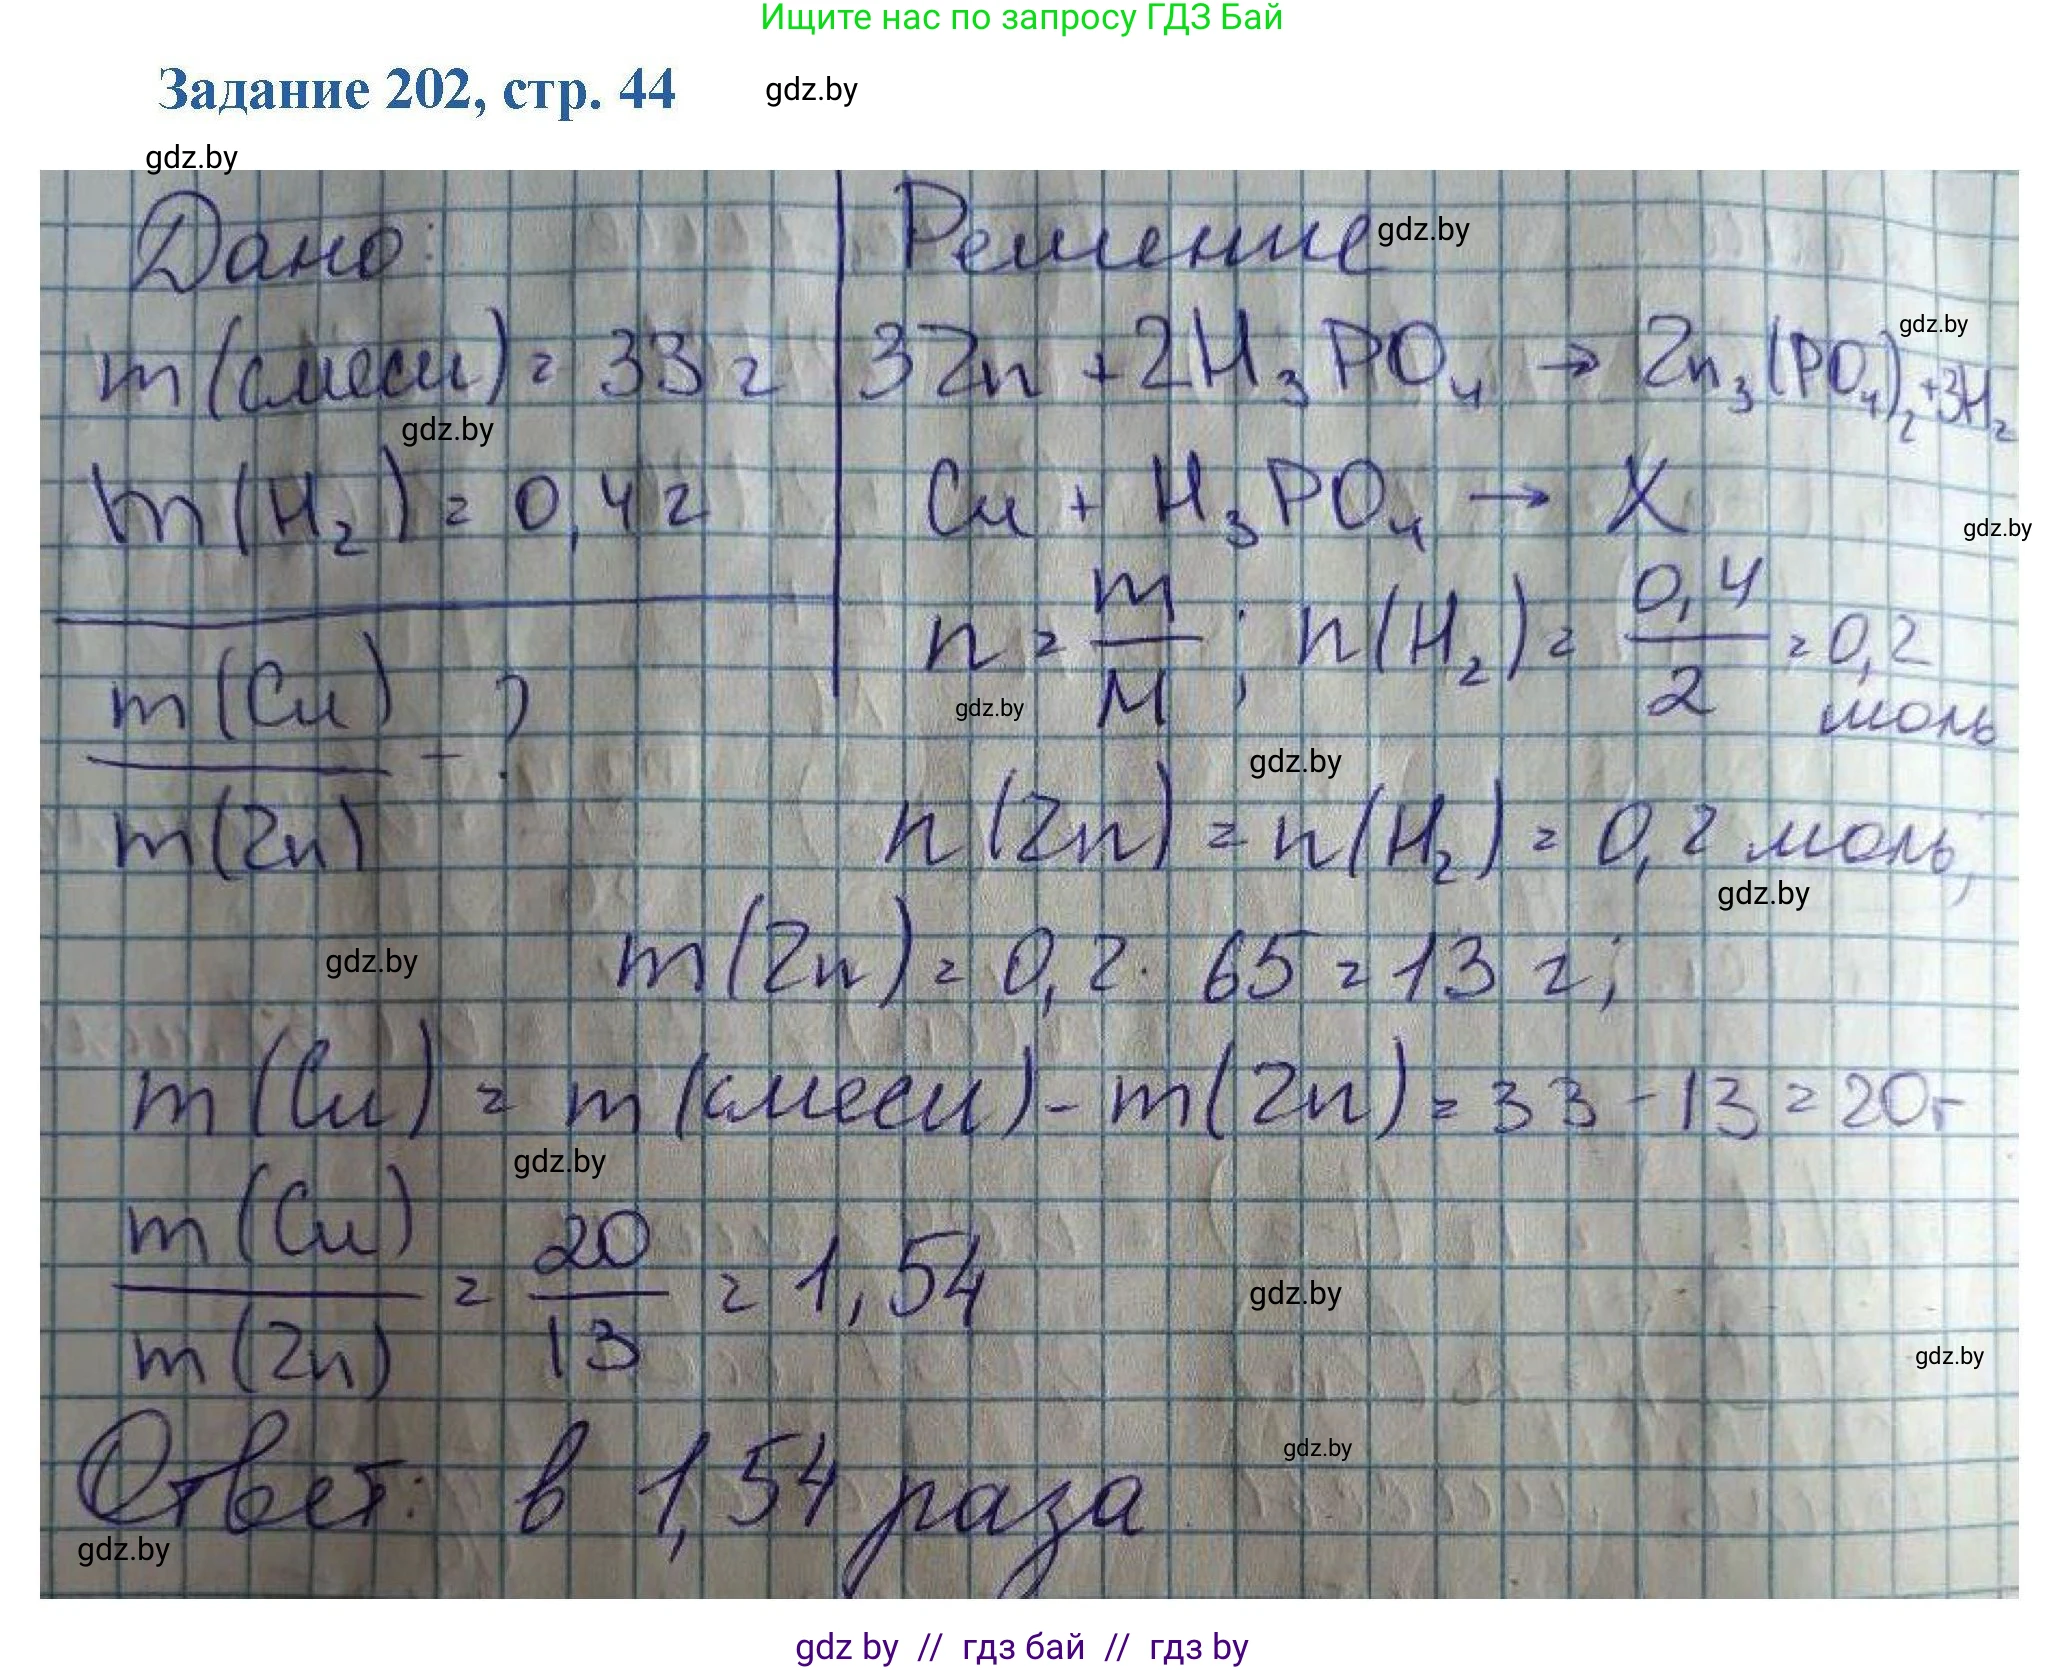 Ищите нас по запросу ГДЗ Бай
Задание 202, стр. 44 gdz.by
gdz.by
Дано: Решение gdz.by
m(смеси) = 33 г 3Zn + 2H₃PO₄ → Zn₃(PO₄)₂ + 3H₂ gdz.by
gdz.by
m(H₂) = 0,4 г Cu + H₃PO₄ → X gdz.by
n = m/M; n(H₂) = 0,4/2 = 0,2 моль
gdz.by
m(Cu)/m(Zn) - ?
gdz.by
n(Zn) = n(H₂) = 0,2 моль;
gdz.by
gdz.by m(Zn) = 0,2 · 65 = 13 г;
m(Cu) = m(смеси) - m(Zn) = 33 - 13 = 20г
gdz.by
m(Cu)/m(Zn) = 20/13 = 1,54 gdz.by
gdz.by
Ответ: в 1,54 раза gdz.by
gdz.by
gdz by // гдз бай // гдз by